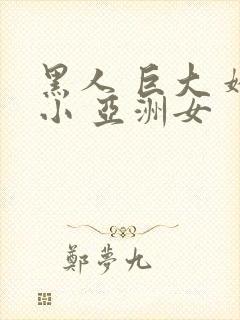 黑人 巨大 嬌
小 亞洲女
鄭夢九